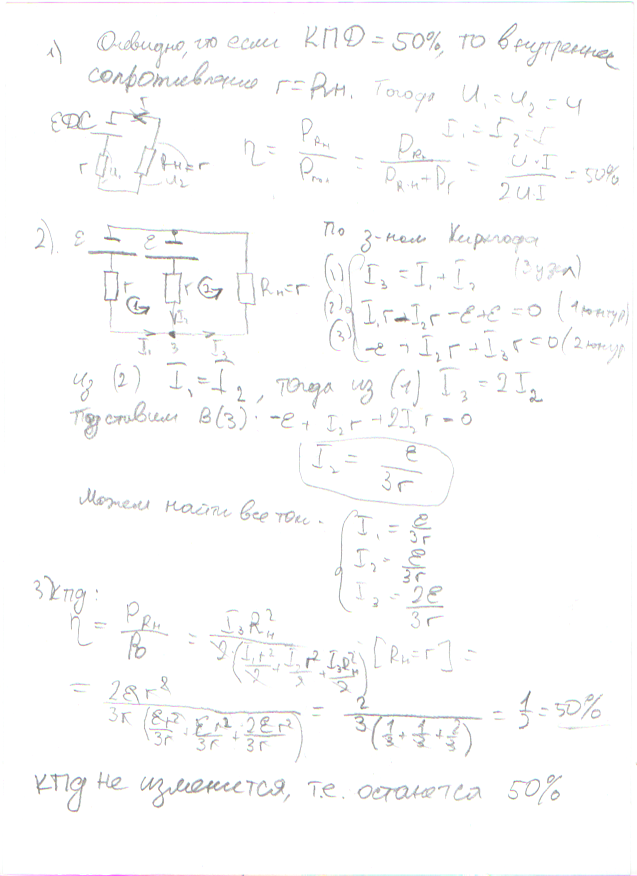 1) Очевидно, что если КПД = 50%, то внутреннее
сопротивление r = Rн. Тогда U₁ = U₂ = U
I₁ = I₂ = I
ЕДС I r
r U₁ Rн=r U₂
η = P_Rн / P_пол = P_Rн / (P_Rн + P_r) = U·I / 2U·I = 50%
2). ε ε r r Rн=r
I₁ I₁ 3 I₃
1 2
По з-нам Кирхгофа
(1) I₃ = I₁ + I₂ (3 узел)
(2) I₁r - I₂r - ε + ε = 0 (1 контур)
(3) -ε + I₂r + I₃r = 0 (2 контур)
из (2) I₁ = I₂, тогда из (1) I₃ = 2I₂
Подставим в (3): -ε + I₂r + 2I₂r = 0
I₂ = ε / 3r
Можем найти все токи.
I₁ = ε / 3r
I₂ = ε / 3r
I₃ = 2ε / 3r
3) КПД:
η = P_Rн / P₀ = I₃Rн² / 2·(I₁r²/2 + I₂r²/2 + I₃Rн²/2) [Rн=r] =
= 2εr² / 3r(εr²/3r + εr²/3r + 2εr²/3r) = 2 / 3(1/3 + 1/3 + 2/3) = 1/2 = 50%
КПД не изменится, т.е. останется 50%